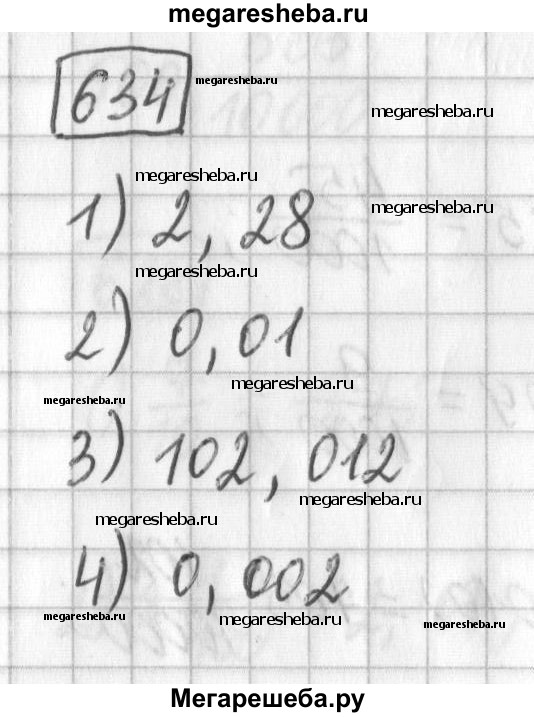 megaresheba.ru
634
megaresheba.ru
megaresheba.ru
megaresheba.ru
1) 2,28
megaresheba.ru
megaresheba.ru
2) 0,01
megaresheba.ru
megaresheba.ru
3) 102,012
megaresheba.ru
megaresheba.ru
4) 0,002
megaresheba.ru
megaresheba.ru
megaresheba.ru
Мегарешеба.ру